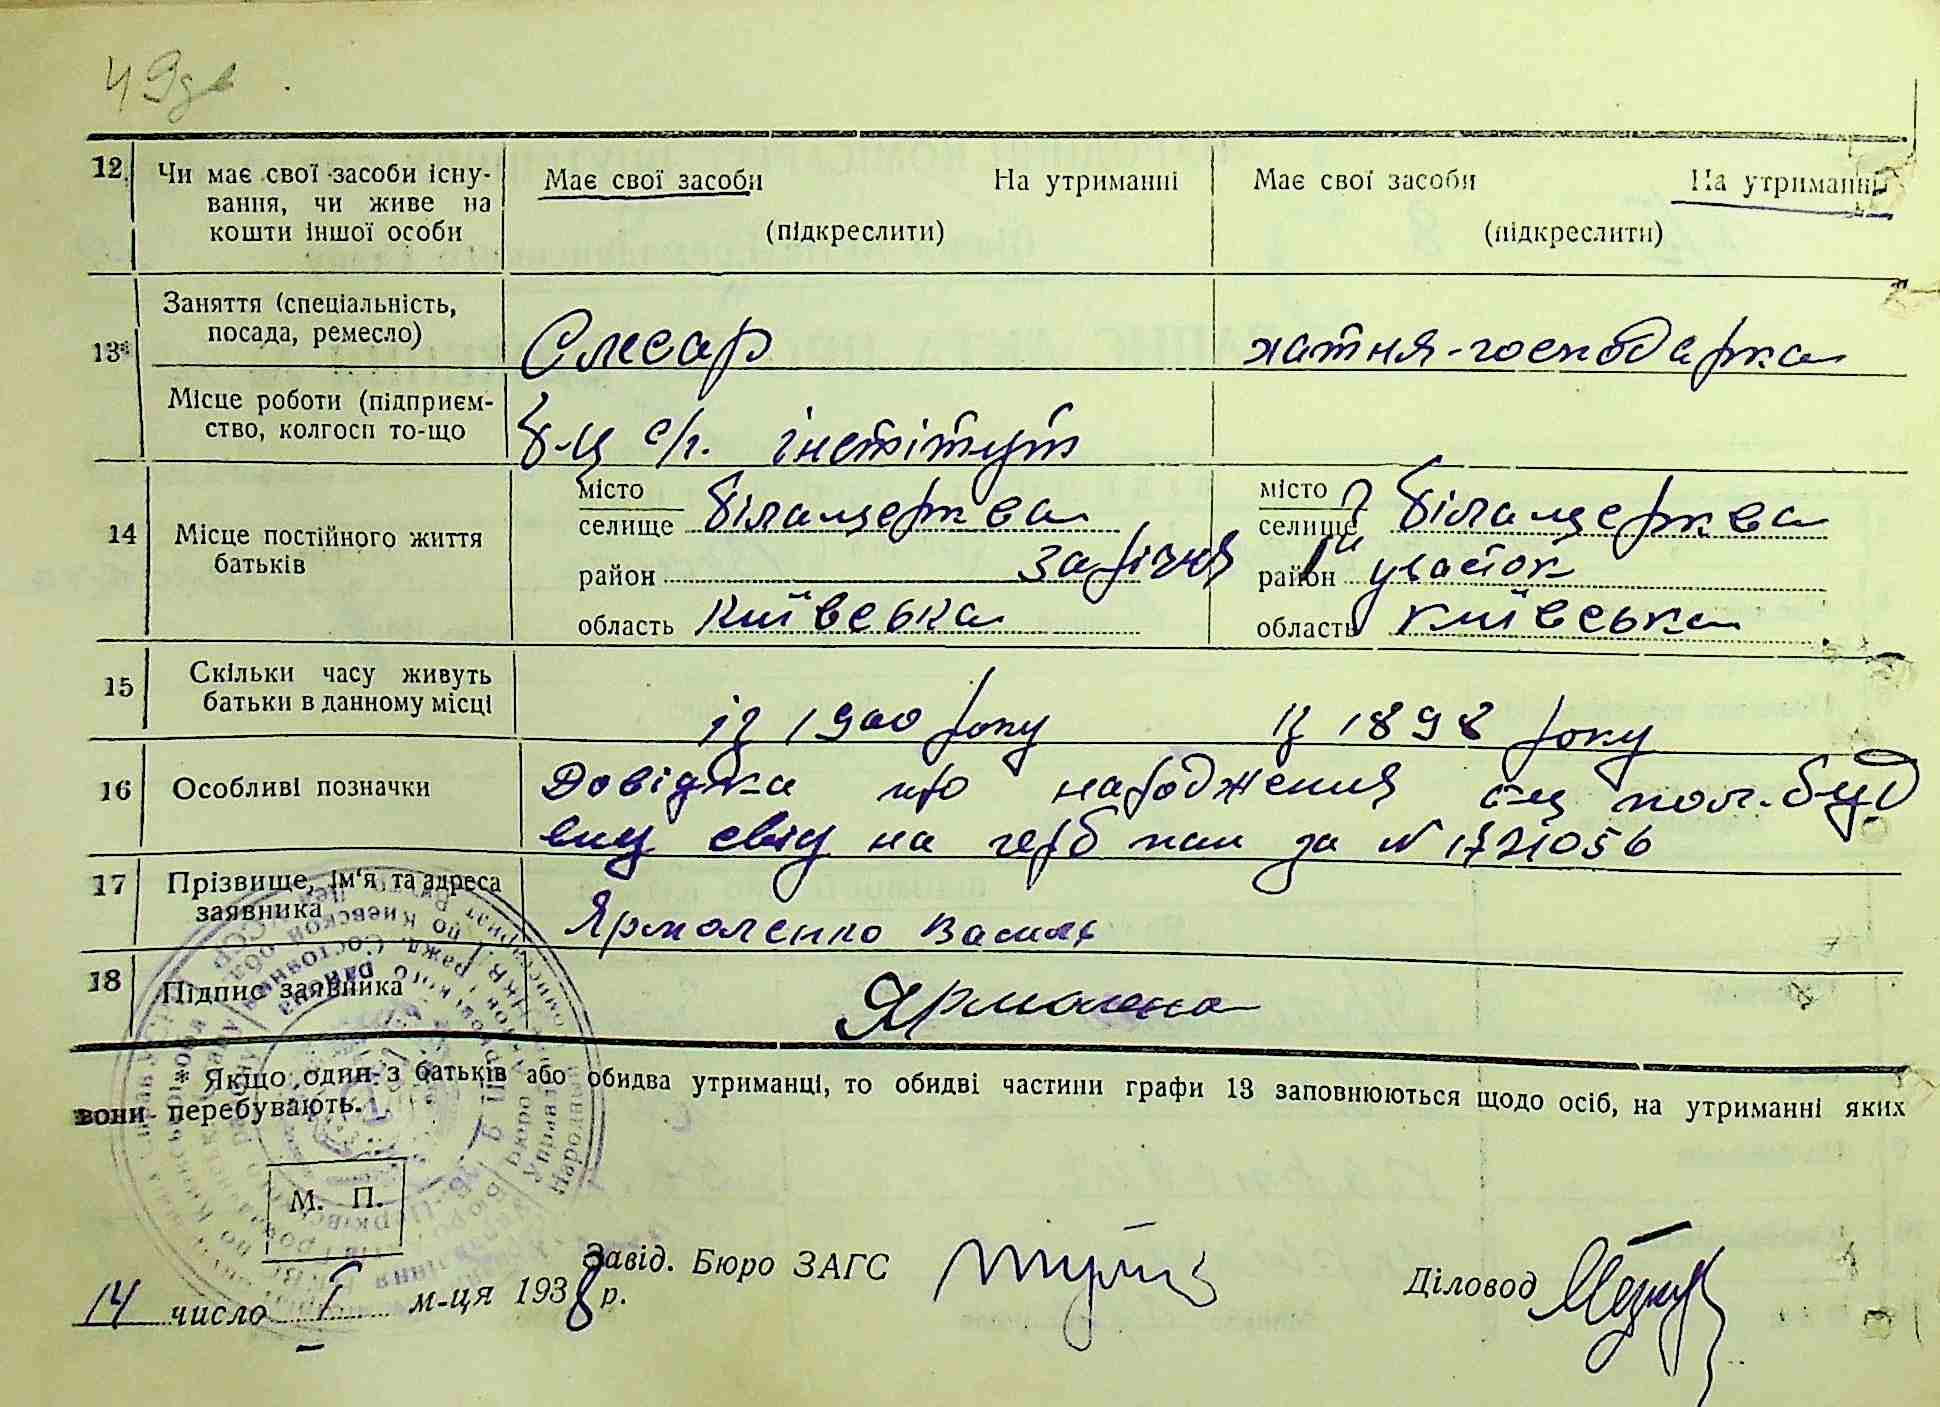 49
12. Чи має свої засоби існу- Має свої засоби На утриманні Має свої засоби На утриманні
вання, чи живе на
кошти іншої особи (підкреслити) (підкреслити)
Заняття (спеціальність,
посада, ремесло) Слєсар хатня-господарка
13*
Місце роботи (підприєм-
ство, колгосп то-що б-ц с/г. інстітут
місто місто
селище білацерква селище білацерква
14 Місце постійного життя
батьків
район зарічня район 1й участок
область київська область київська
15 Скільки часу живуть
батьки в данному місці із 1900 року із 1898 року
16 Особливі позначки Довідка про народження
на герб пап за N 1721056
17 Прізвище, ім'я та адреса
заявника Ярмоленко Василь
18 Підпис заявника Ярмолена
* Якщо один з батьків або обидва утриманці, то обидві частини графи 13 заповнюються щодо осіб, на утриманні яких
вони перебувають.
М. П.
Завід. Бюро ЗАГС Діловод
14 число I м-ця 1938 р.